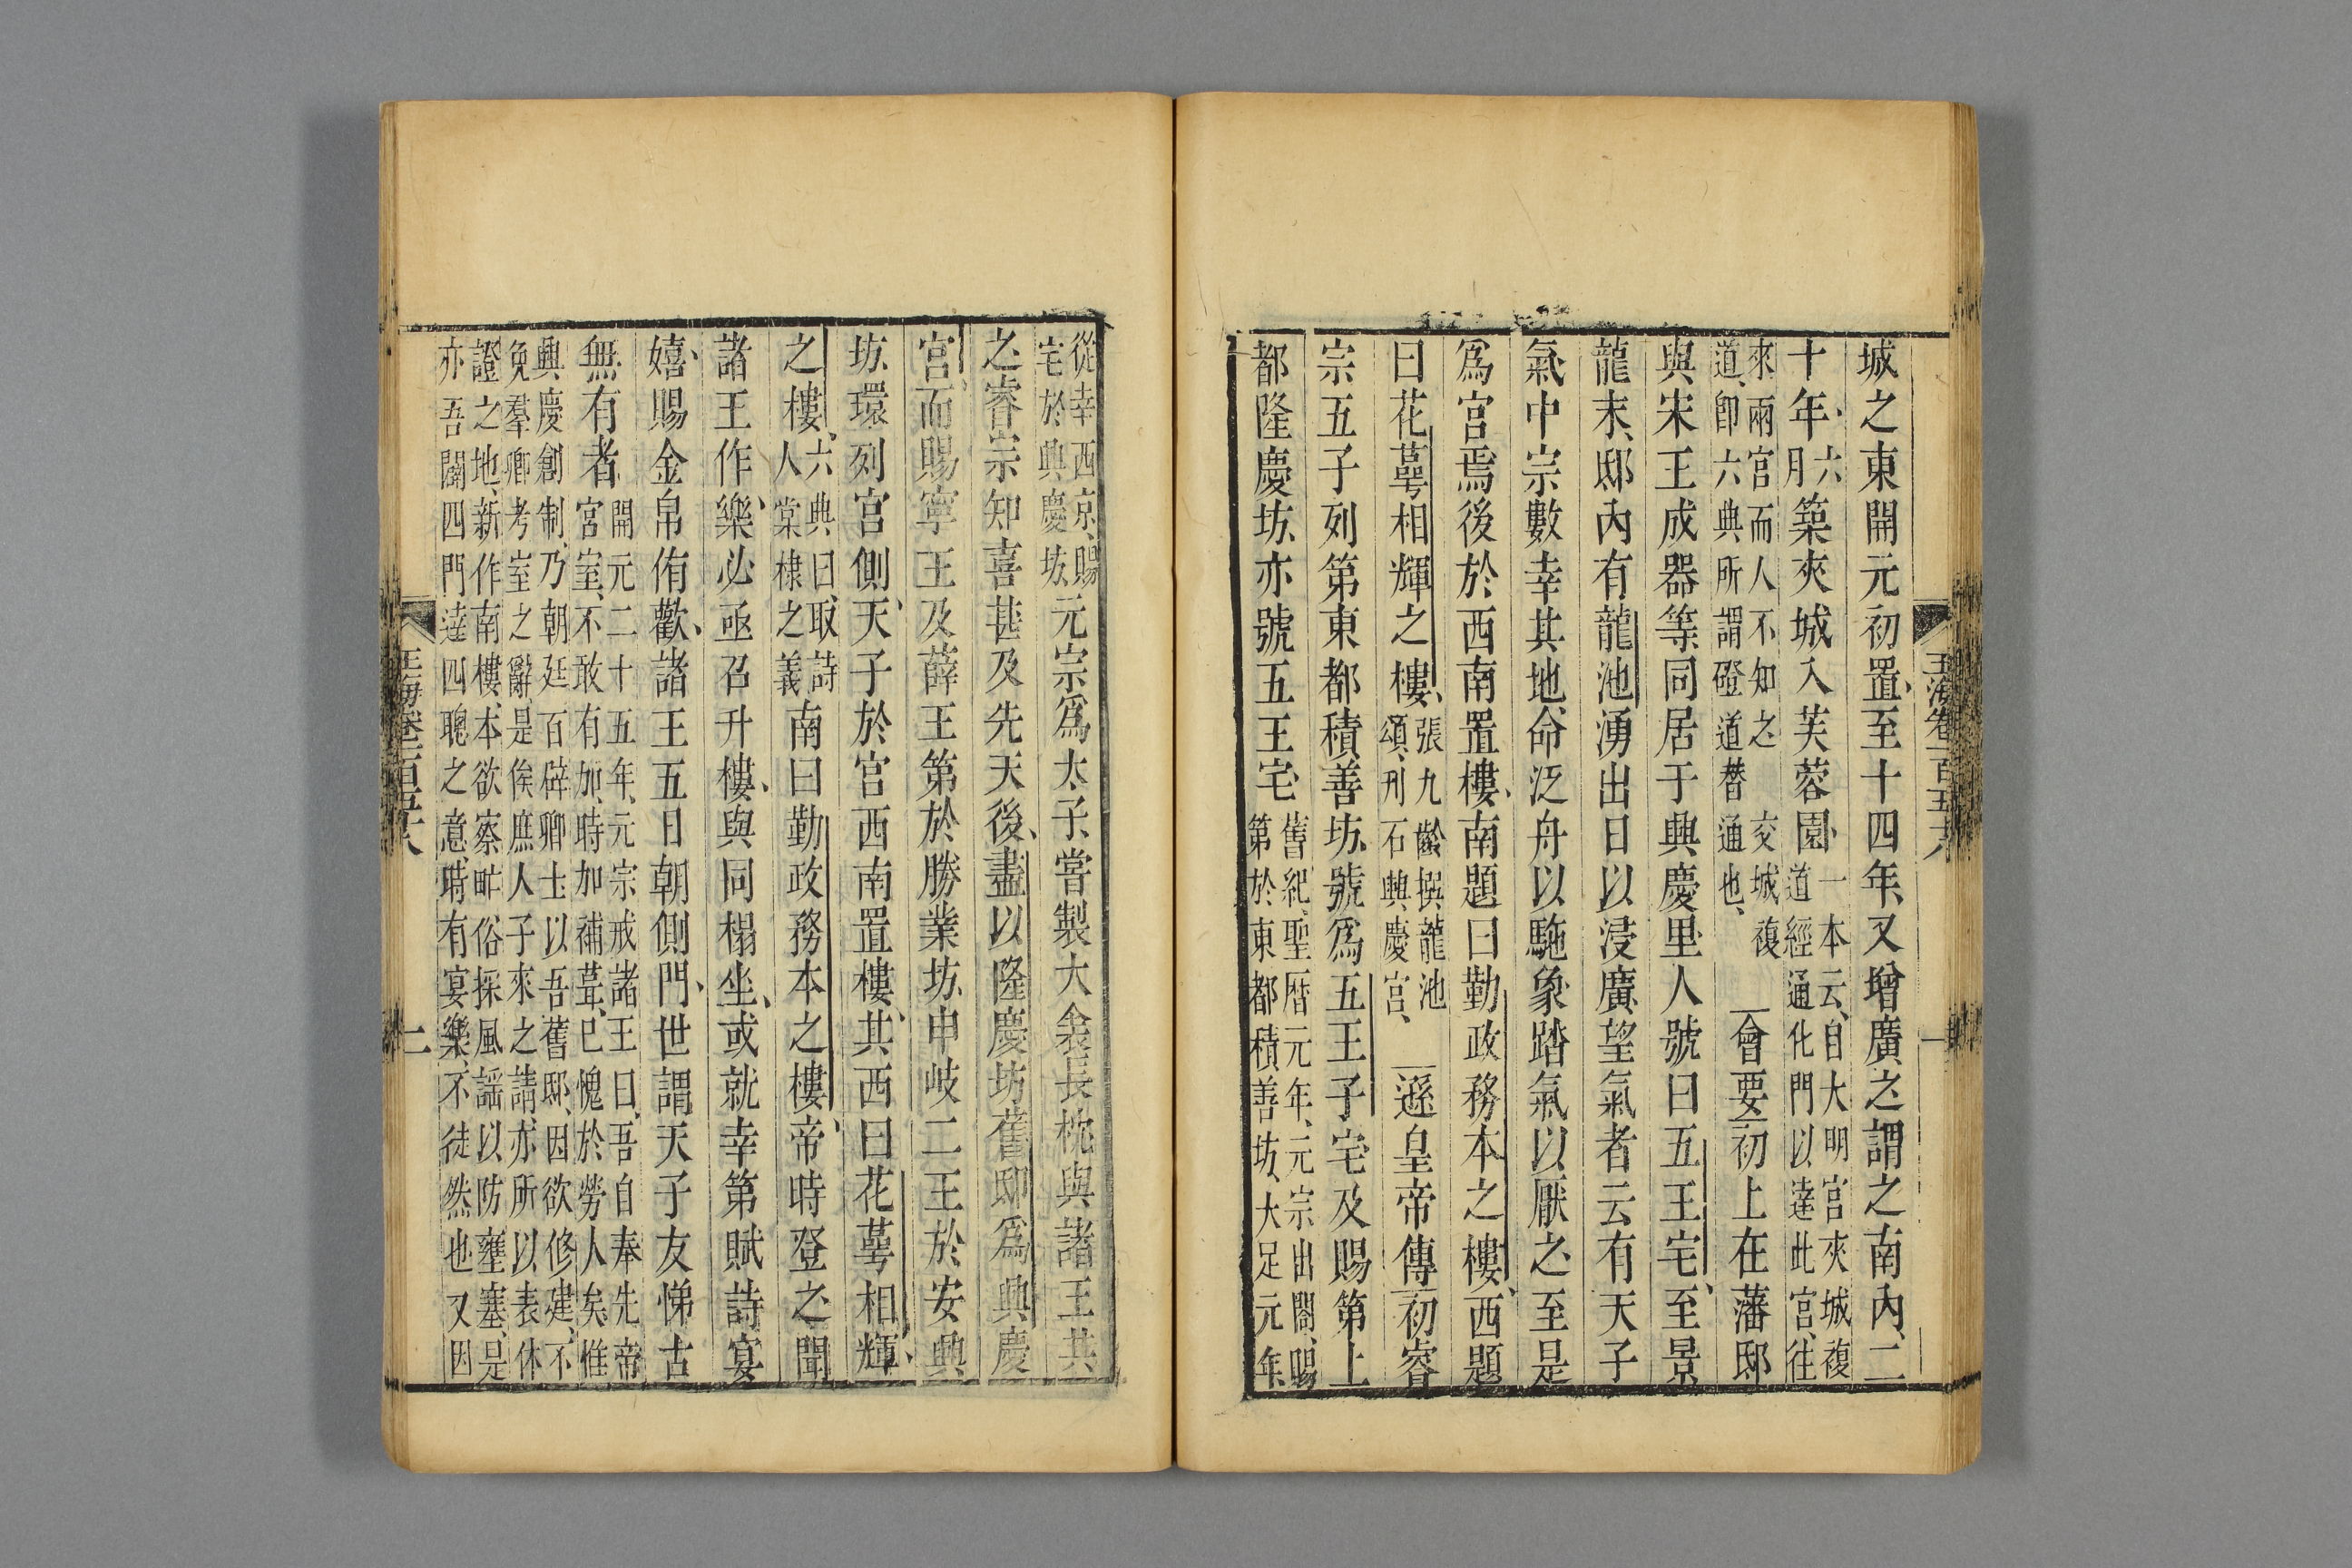 玉海卷一百五十八
城之東開元初置至十四年又增廣之謂之南內二
十年六月築夾城入芙蓉園一本云自大明宮夾城複道經通化門以達此宮往
來兩宮而人不知之道即六典所謂磴道朁通也夾城複會要初上在藩邸
與宋王成器等同居于興慶里人號曰五王宅至景
龍末邸內有龍池湧出日以浸廣望氣者云有天子
氣中宗數幸其地命泛舟以駞象踏氣以厭之至是
爲宮焉後於西南置樓南題曰勤政務本之樓西題
曰花萼相輝之樓張九齡撰龍池頌刊石興慶宮遜皇帝傳初睿
宗五子列第東都積善坊號爲五王子宅及賜第上
都隆慶坊亦號五王宅舊紀聖曆元年元宗出閤賜第於東都積善坊大足元年
從幸西京賜宅於興慶坊元宗爲太子嘗製大衾長枕與諸王共
之睿宗知喜甚及先天後盡以隆慶坊舊邸爲興慶
宮而賜寧王及薛王第於勝業坊申岐二王於安興
坊環列宮側天子於宮西南置樓其西曰花萼相輝
之樓六典曰取詩人棠棣之義南曰勤政務本之樓帝時登之聞
諸王作樂必亟召升樓與同榻坐或就幸第賦詩宴
嬉賜金帛侑歡諸王五日朝側門世謂天子友悌古
無有者開元二十五年元宗戒諸王曰吾自奉先帝宮室不敢有加時加補葺已愧於勞人矣惟
興慶創制乃朝廷百辟卿士以吾舊邸因欲修建不免羣卿考室之辭是俟庶人子來之請亦所以表休
證之地新作南樓本欲察甿俗採風謡以防壅塞是亦吾闢四門達四聰之意時有宴樂不徒然也又因
玉海卷一百五十八